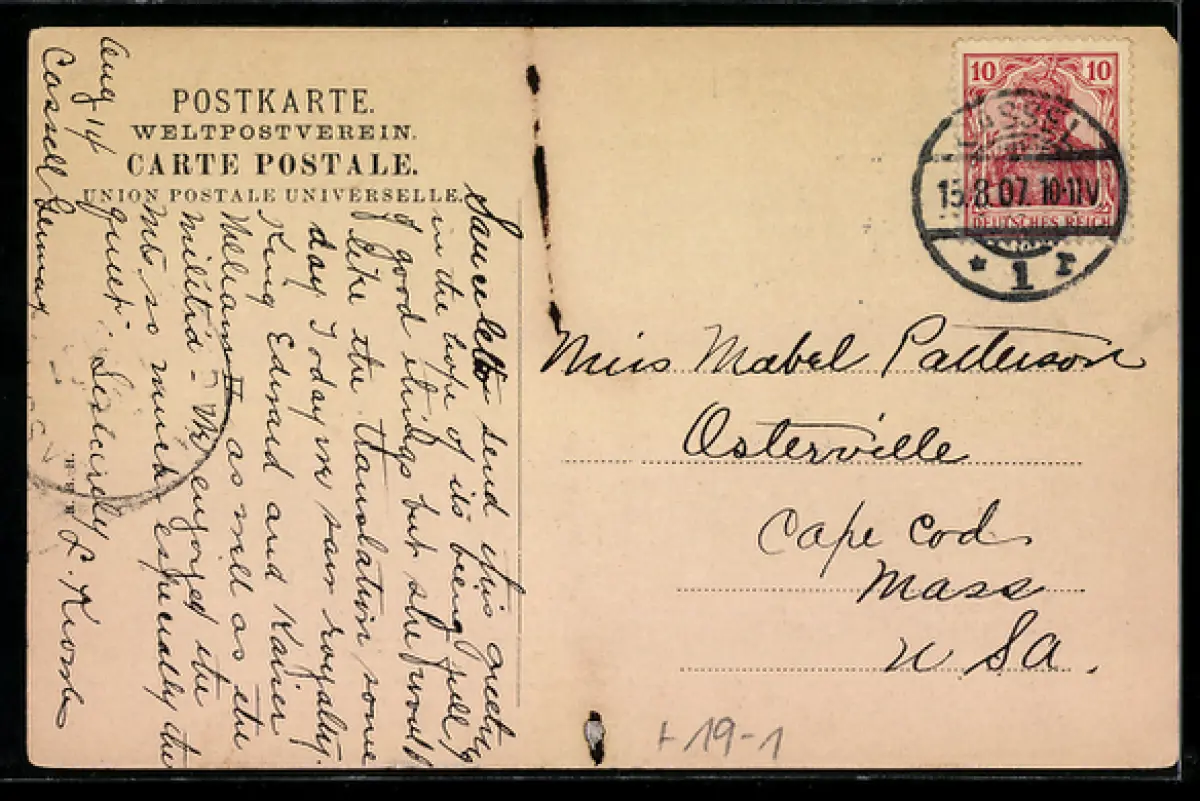 POSTKARTE.
WELTPOSTVEREIN.
CARTE POSTALE.
UNION POSTALE UNIVERSELLE.
Cassell Germany
Aug 14
send this greeting
in the hope of its being full
of good things but she would
like the translation some
day. Today we saw royalty.
King Edward and Kaiser
William II as well as the
militia - We enjoyed the
so much especially the
Sincerely L.
10 10
CASSEL
15.8.07. 10-11V
DEUTSCHES REICH
* 1 r
Miss Mabel Patterson
Osterville
Cape Cod
Mass
U SA.
+19-1